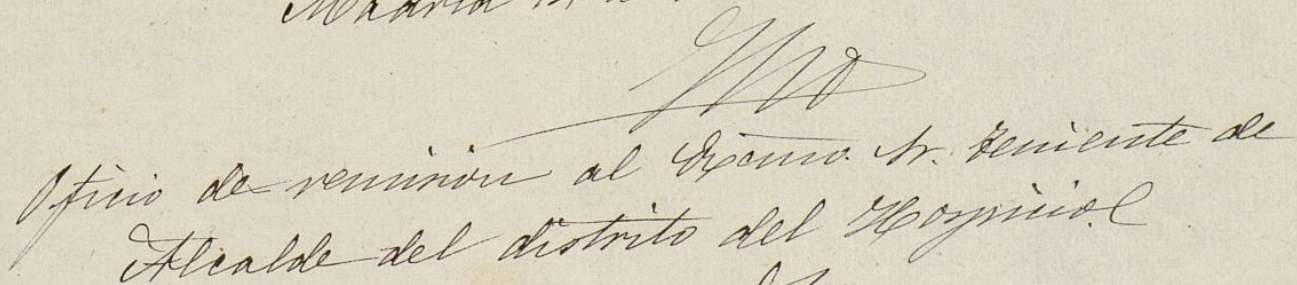 Madrid
Oficio de remisión al Excmo. Sr. Teniente de
Alcalde del distrito del Hospicio.